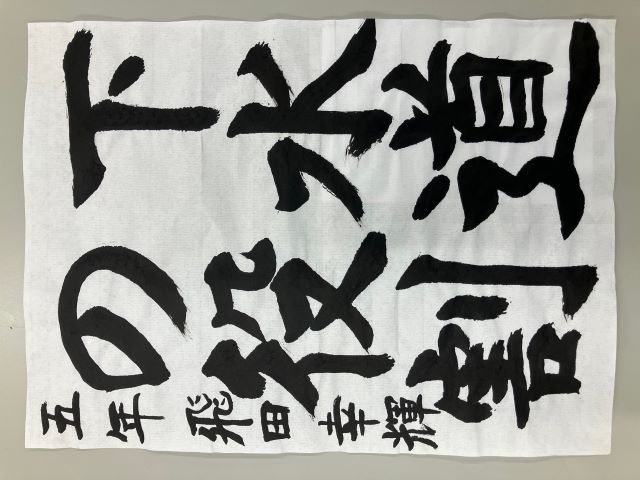 下水道
の役割
五年 飛田幸輝